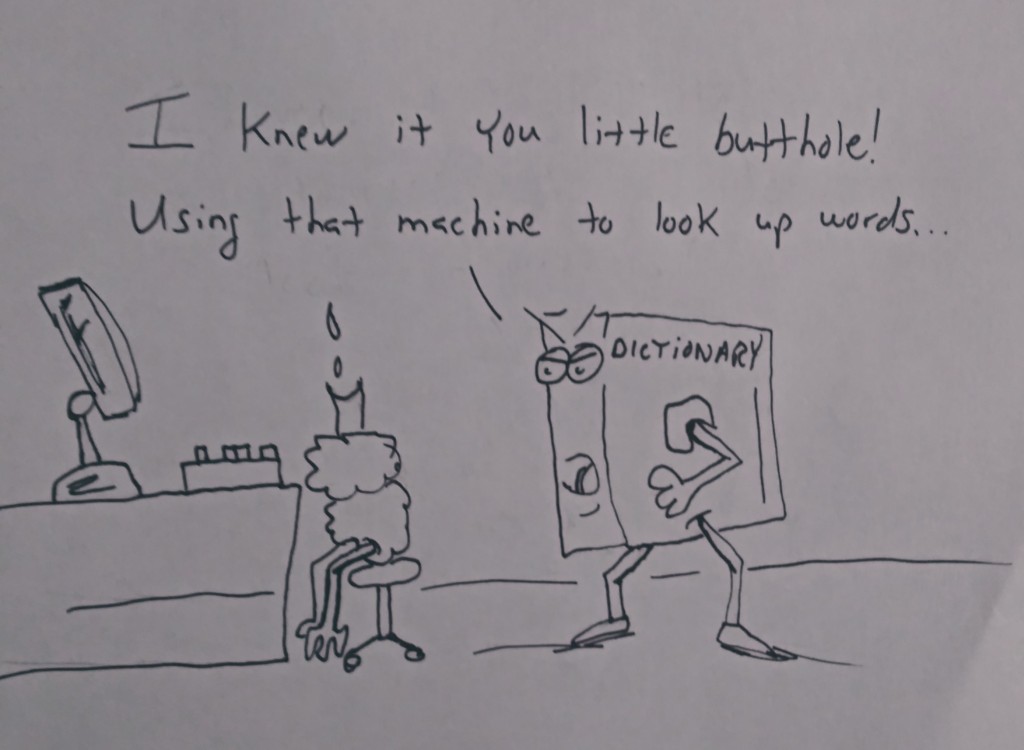 I Knew it You little butthole!
Using that machine to look up words...
DICTIONARY